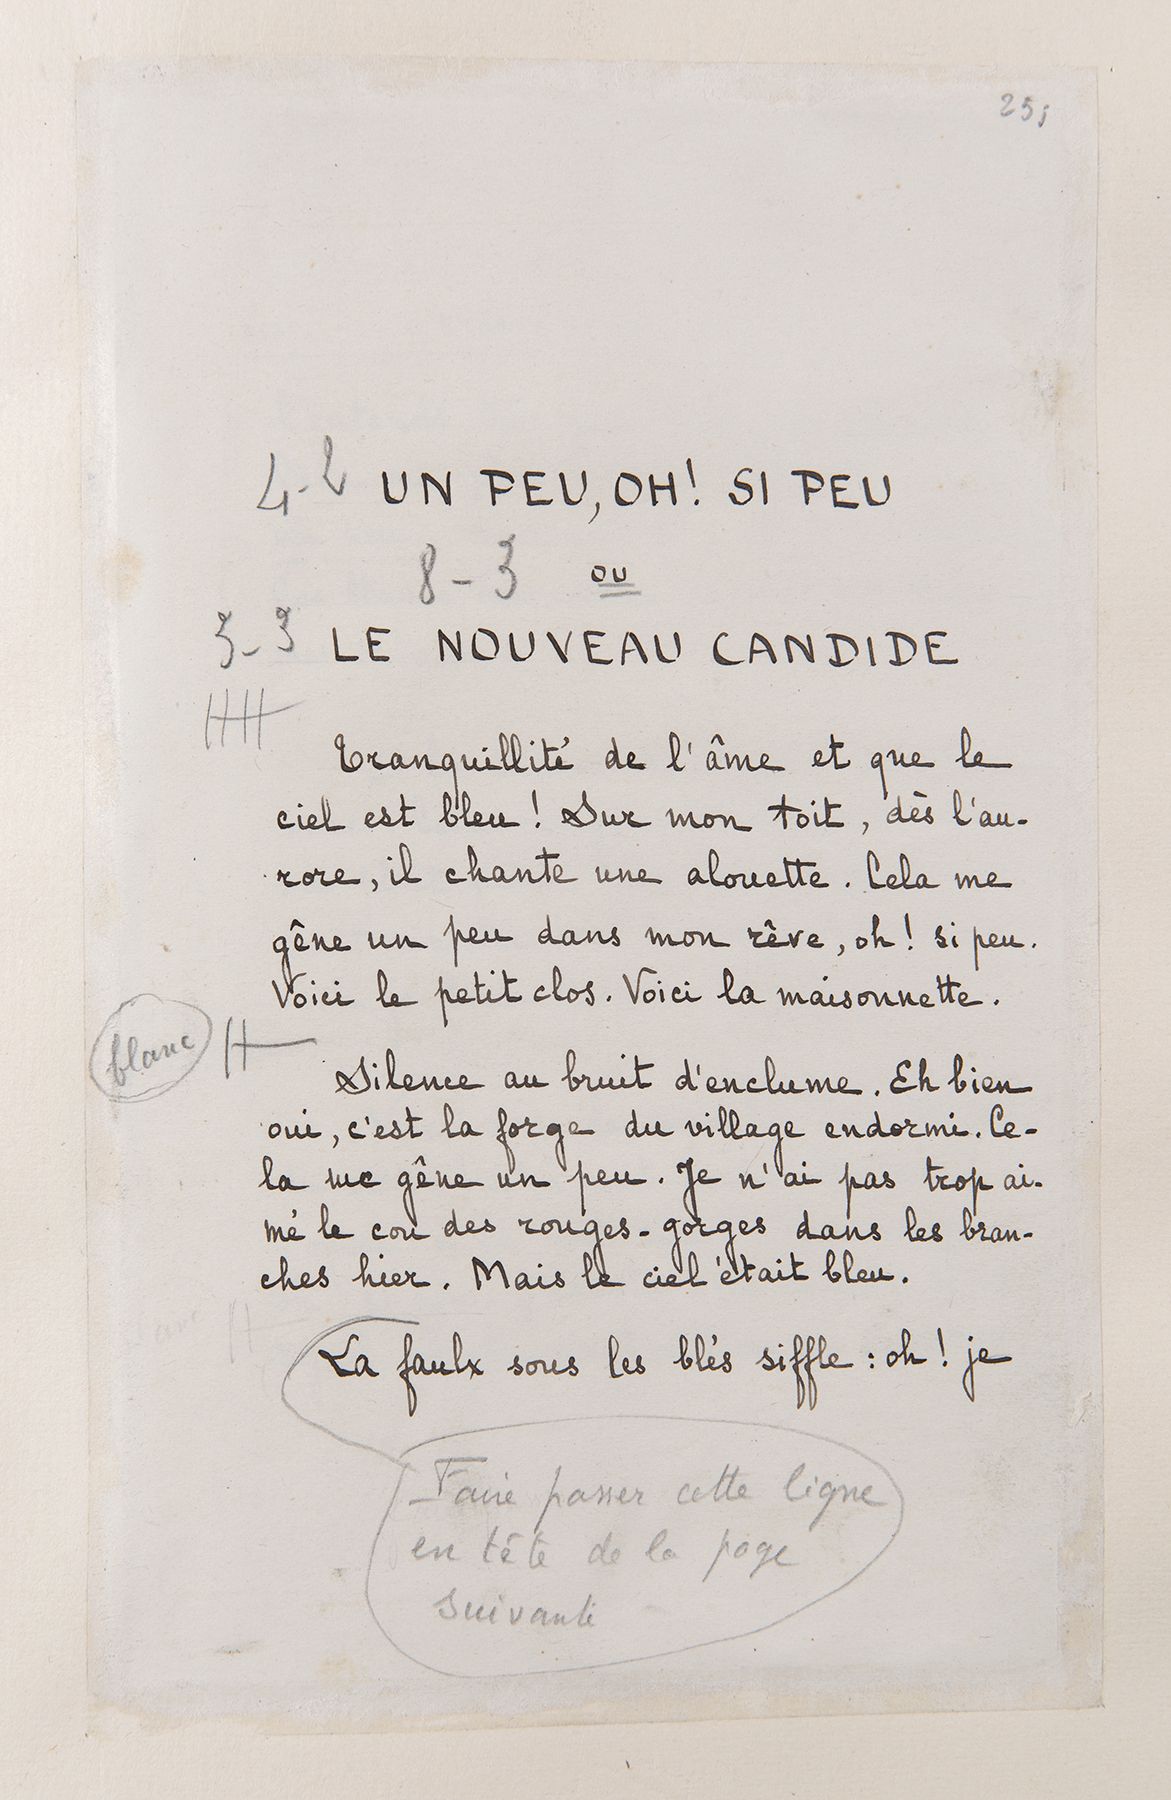 25
4-2 UN PEU, OH! SI PEU
8-3 OU
3-3 LE NOUVEAU CANDIDE
Tranquillité de l'âme et que le
ciel est bleu! Sur mon toit, dès l'au-
rore, il chante une alouette. Cela me
gêne un peu dans mon rêve, oh! si peu.
Voici le petit clos. Voici la maisonnette.
blanc
Silence au bruit d'enclume. Eh bien
oui, c'est la forge du village endormi. Ce-
la me gêne un peu. Je n'ai pas trop ai-
mé le cou des rouges-gorges dans les bran-
ches hier. Mais le ciel était bleu.
La faulx sous les blés siffle: oh! je
Faire passer cette ligne
en tête de la page
suivante